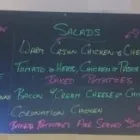 SALADS
WARM CAJUN CHICKEN & CHEE
TOMATO & HERB, CHICKEN & PASTA
JACKET POTATOES
BACON & CREAM CHEESE & CHIV
CORONATION CHICKEN
BAKED POTATOES ARE SERVED